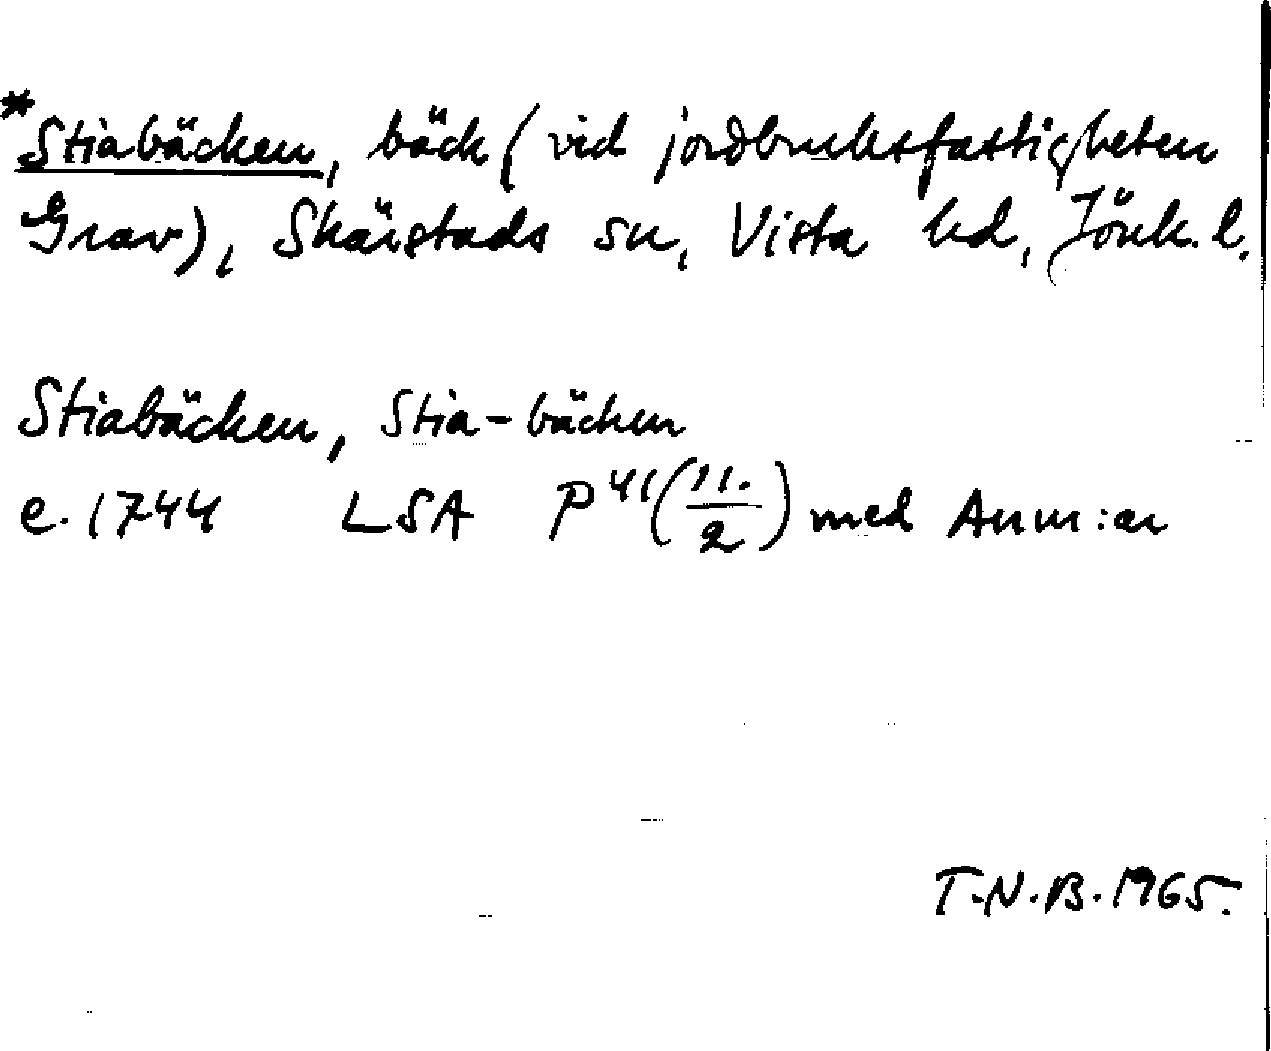 *Stiabäcken, bäck (vid jordbruksfastigheten
Grav), Skärstads sn, Vista hd, Jönk. l.
Stiabäcken, Stia-bäcken
e. 1744 LSA P 41 (11./2) med Anm:ar
T.N.B. 1965.